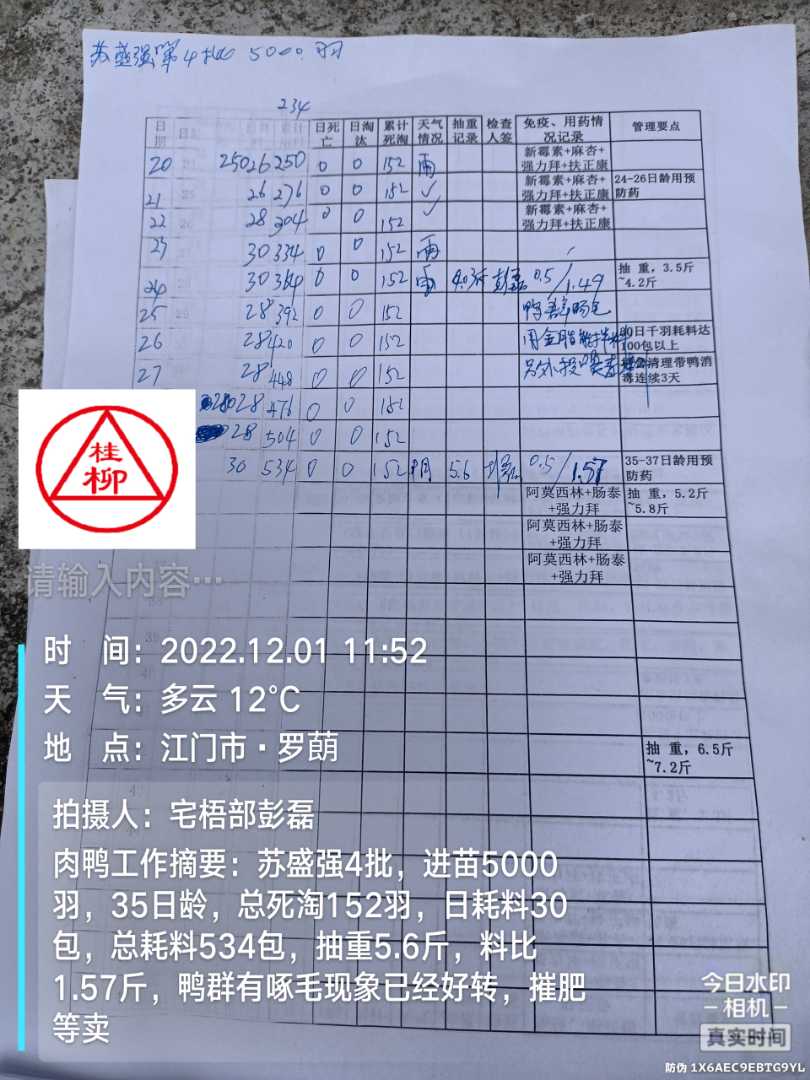 苏盛强第4批 5000羽
234
日期 日死亡 日淘汰 累计死淘 天气情况 抽重记录 检查人签 免疫、用药情况记录 管理要点
20 25 26 250 0 0 152 雨 新霉素+麻杏+强力拜+扶正康
21 26 276 0 0 152 ✓ 新霉素+麻杏+强力拜+扶正康 24-26日龄用预防药
22 28 304 0 0 152 ✓ 新霉素+麻杏+强力拜+扶正康
23 30 334 0 0 152 雨
24 30 364 0 0 152 彭磊 0.5/1.49 抽重，3.5斤~4.2斤
25 28 392 0 0 152
26 28 420 0 0 152 日千羽耗料达100包以上
27 28 448 0 0 152 清理带鸭消毒连续3天
28 28 476 0 0 152
28 504 0 0 152
30 534 0 0 152 阴 5.6 0.5/1.57 35-37日龄用预防药
阿莫西林+肠泰+强力拜 抽重，5.2斤~5.8斤
阿莫西林+肠泰+强力拜
阿莫西林+肠泰+强力拜
抽重，6.5斤~7.2斤
桂柳
请输入内容…
时 间：2022.12.01 11:52
天 气：多云 12°C
地 点：江门市·罗萌
拍摄人：宅梧部彭磊
肉鸭工作摘要：苏盛强4批，进苗5000
羽，35日龄，总死淘152羽，日耗料30
包，总耗料534包，抽重5.6斤，料比
1.57斤，鸭群有啄毛现象已经好转，摧肥
等卖
今日水印
相机
真实时间
防伪 1X6AEC9EBTG9YL